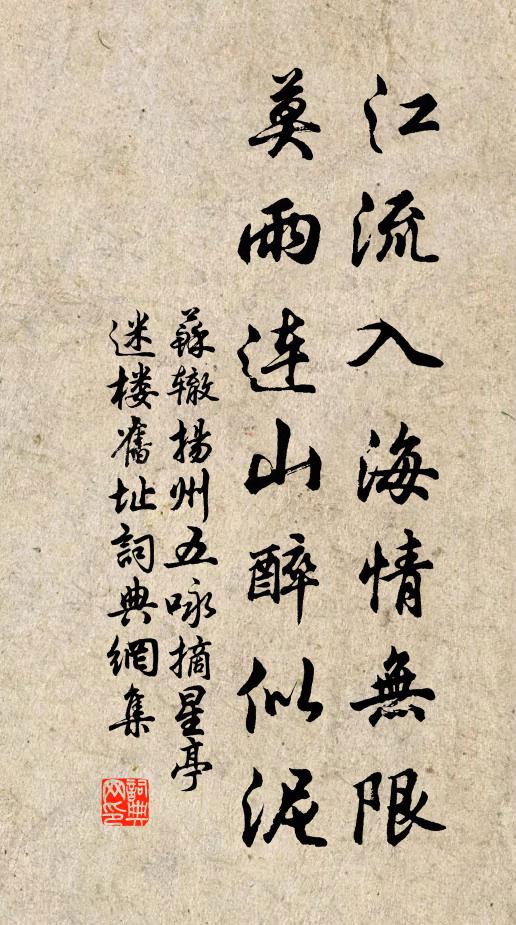 江流入海情無限
莫雨連山醉似泥
蘇轍揚州五咏摘星亭
迷楼舊址詞典網集
詞典网印